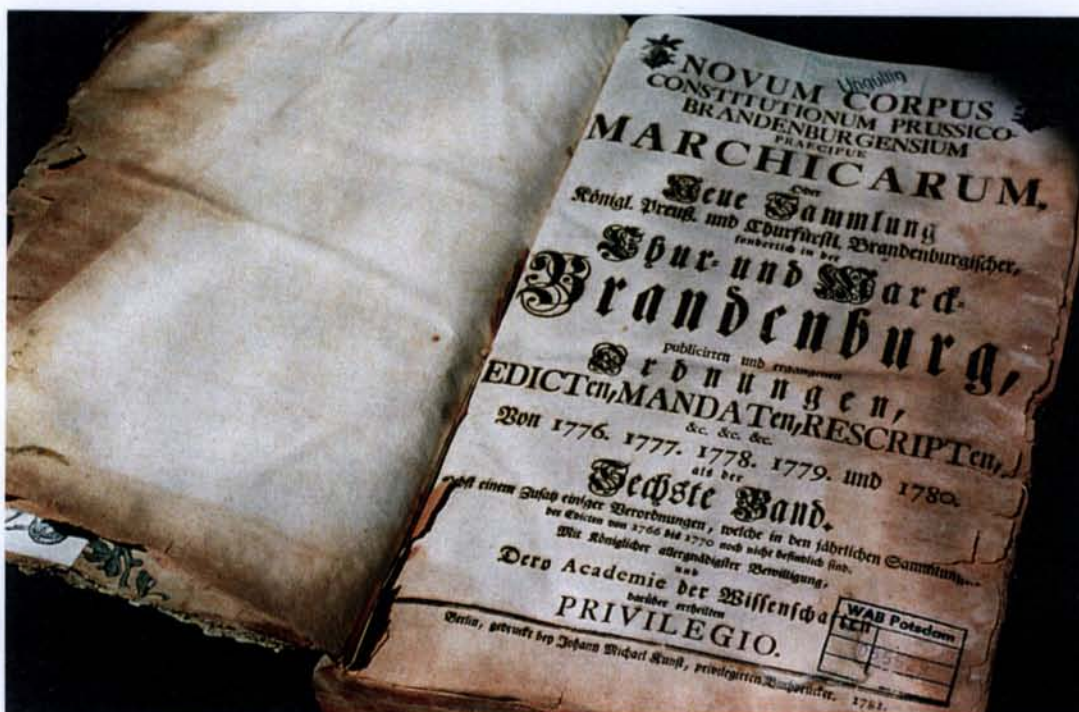 Ungültig
NOVUM CORPUS
CONSTITUTIONUM PRUSSICO-
BRANDENBURGENSIUM
PRAECIPUE
MARCHICARUM,
Oder
Neue Sammlung
Königl. Preuß. und Churfürstl. Brandenburgischer,
sonderlich in der
Chur- und Marck-
Brandenburg,
publicirten und ergangenen
Ordnungen,
EDICTen, MANDATen, RESCRIPTen,
&c. &c. &c.
Von 1776. 1777. 1778. 1779. und 1780.
als der
Sechste Band.
nebst einem Zusatz einiger Verordnungen, welche in den jährlichen
der Edicten von 1766 bis 1770 noch nicht befindlich sind.
Mit Königlicher allergnädigster Bewilligung,
und
Dero Academie der Wissenschaften
darüber ertheilten
PRIVILEGIO.
Berlin, gedruckt bey Johann Michael Kunst, privilegirten Buchdrucker. 1781.
WAB Potsdam